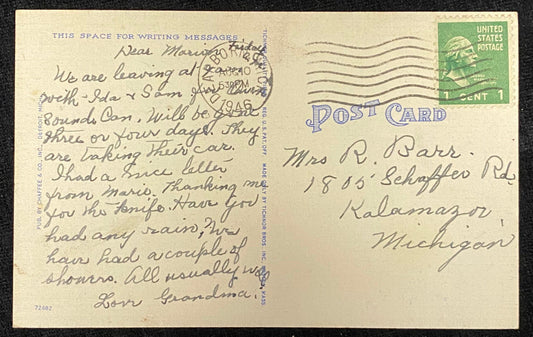 THIS SPACE FOR WRITING MESSAGES
Dear Marion Friday
We are leaving at
with Ida & Sam for Owen
Sounds Can. Will be gone
three or four days. They
are taking their car.
I had a nice letter
from Marie. Thanking me
for the knife. Have you
had any rain, We
have had a couple of
showers. All usually well
Love Grandma.
72662
PUB. BY CHAFFEE & CO., INC., DETROIT, MICH.
DEARBORN
AUG 10
530PM
1946
REG. U.S. PAT. OFF. MADE ONLY BY TICHNOR BROS. INC. BOSTON, MASS
UNITED
STATES
POSTAGE
1 CENT 1
POST CARD
Mrs R. Barr.
1805 Schaffer Rd.
Kalamazoo
Michigan